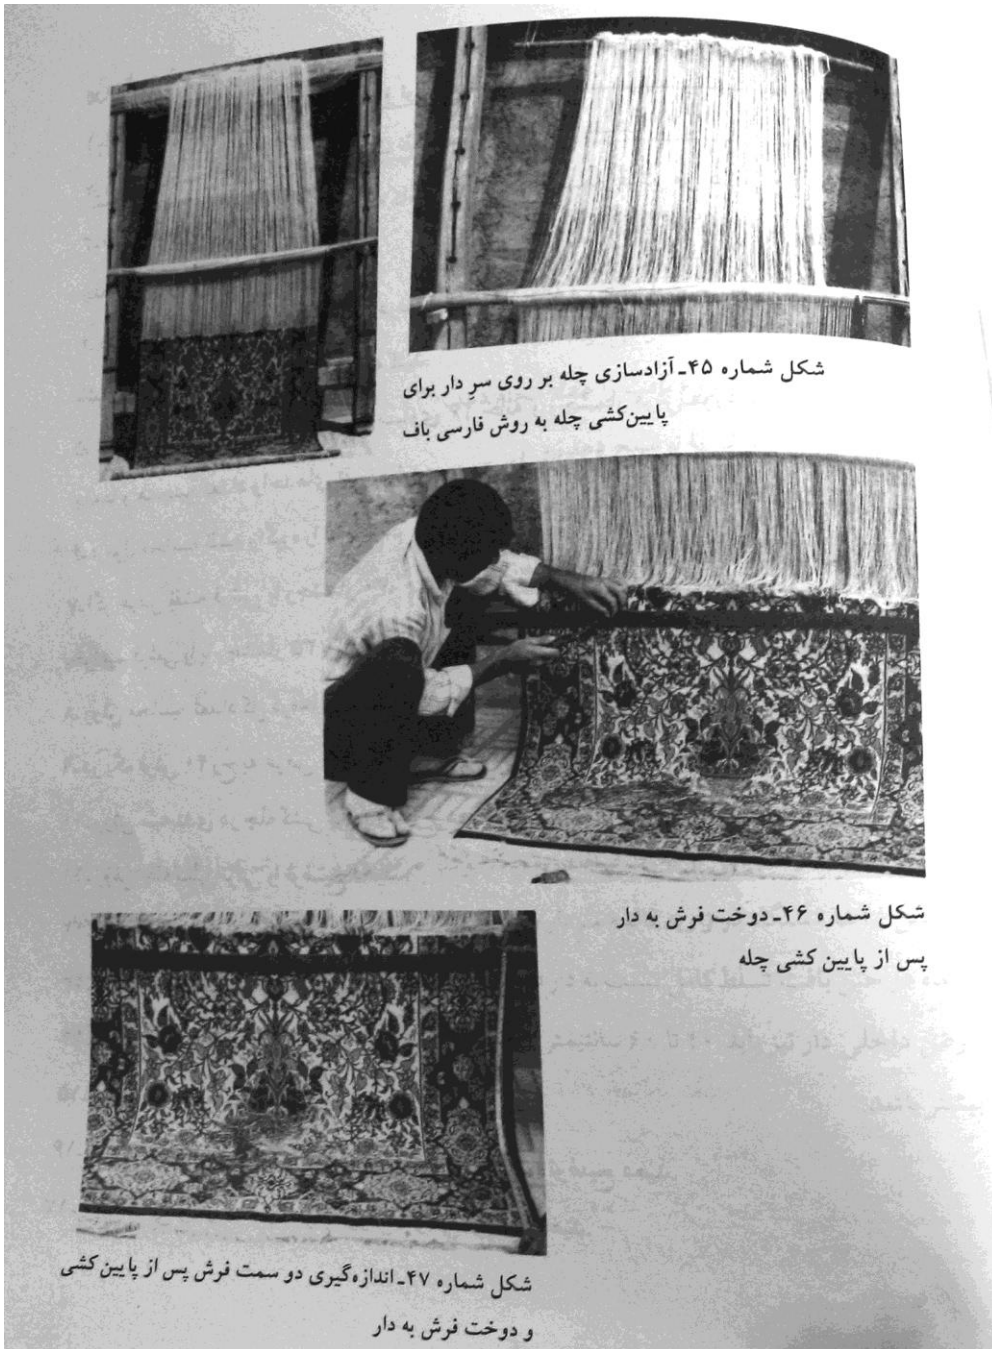 شکل شماره ۴۵ـ آزادسازی چله بر روی سرِ دار برای
پایین‌کشی چله به روش فارسی باف
شکل شماره ۴۶ـ دوخت فرش به دار
پس از پایین کشی چله
شکل شماره ۴۷ـ اندازه‌گیری دو سمت فرش پس از پایین‌کشی
و دوخت فرش به دار